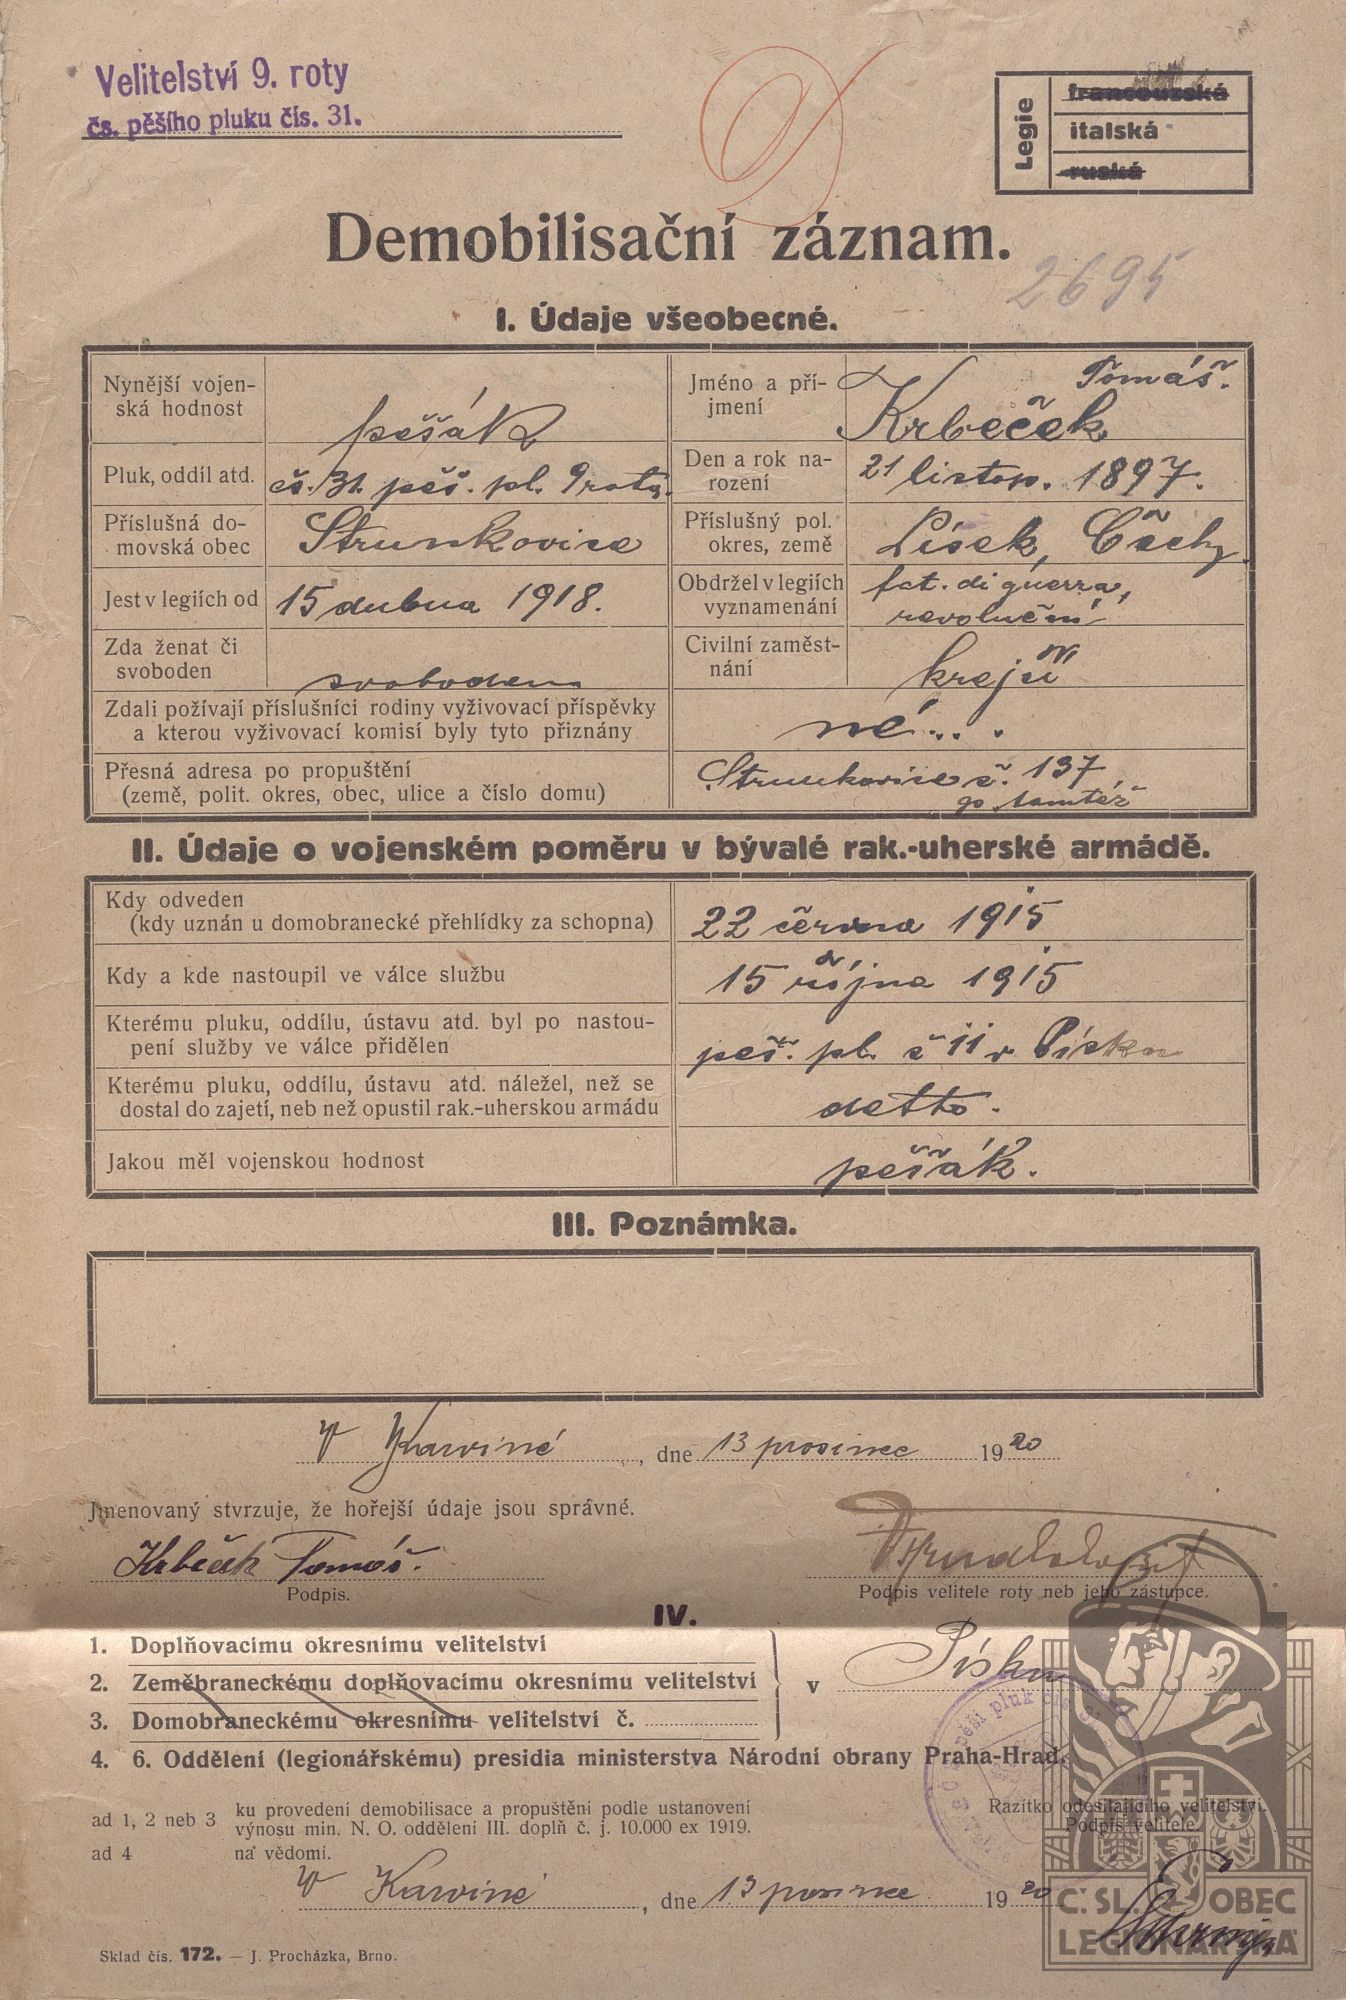 Velitelství 9. roty
čs. pěšího pluku čís. 31.
Legie
francouzská
italská
ruská
Demobilisační záznam.
2695
I. Údaje všeobecné.
Nynější vojen-
ská hodnost
pěšák
Jméno a pří-
jmení
Tomáš.
Krbeček
Pluk, oddíl atd.
čs. 31. pěš. pl. 9 rota.
Den a rok na-
rození
21 listop. 1897.
Příslušná do-
movská obec
Strunkovice
Příslušný pol.
okres, země
Písek, Čechy.
Jest v legiích od
15 dubna 1918.
Obdržel v legiích
vyznamenání
fat. di guerra,
revoluční
Zda ženat či
svoboden
svoboden
Civilní zaměst-
nání
krejčí
Zdali požívají příslušníci rodiny vyživovací příspěvky
a kterou vyživovací komisí byly tyto přiznány
né...
Přesná adresa po propuštění
(země, polit. okres, obec, ulice a číslo domu)
Strunkovice č. 137
tamtéž
II. Údaje o vojenském poměru v bývalé rak.-uherské armádě.
Kdy odveden
(kdy uznán u domobranecké přehlídky za schopna)
22 června 1915
Kdy a kde nastoupil ve válce službu
15 října 1915
Kterému pluku, oddílu, ústavu atd. byl po nastou-
pení služby ve válce přidělen
pěš. pl. č 11 v Písku
Kterému pluku, oddílu, ústavu atd. náležel, než se
dostal do zajetí, neb než opustil rak.-uherskou armádu
detto.
Jakou měl vojenskou hodnost
pěšák.
III. Poznámka.
V Karviné, dne 13 prosinec 1920
Jmenovaný stvrzuje, že hořejší údaje jsou správné.
Krbeček Tomáš.
Podpis.
Podpis velitele roty neb jeho zástupce.
IV.
1. Doplňovacímu okresnímu velitelství
2. Zeměbraneckému doplňovacímu okresnímu velitelství
3. Domobraneckému okresnímu velitelství č.
v Písku
4. 6. Oddělení (legionářskému) presidia ministerstva Národní obrany Praha-Hrad.
pěší pluk čís
ad 1, 2 neb 3 ku provedení demobilisace a propuštění podle ustanovení
výnosu min. N. O. oddělení III. doplň č. j. 10.000 ex 1919.
ad 4 na vědomí.
Razítko odesílajícího velitelství.
Podpis velitele.
V Karviné, dne 13 prosinec 1920
Č. SL. OBEC
LEGIONÁŘSKÁ
Sklad čís. 172. — J. Procházka, Brno.